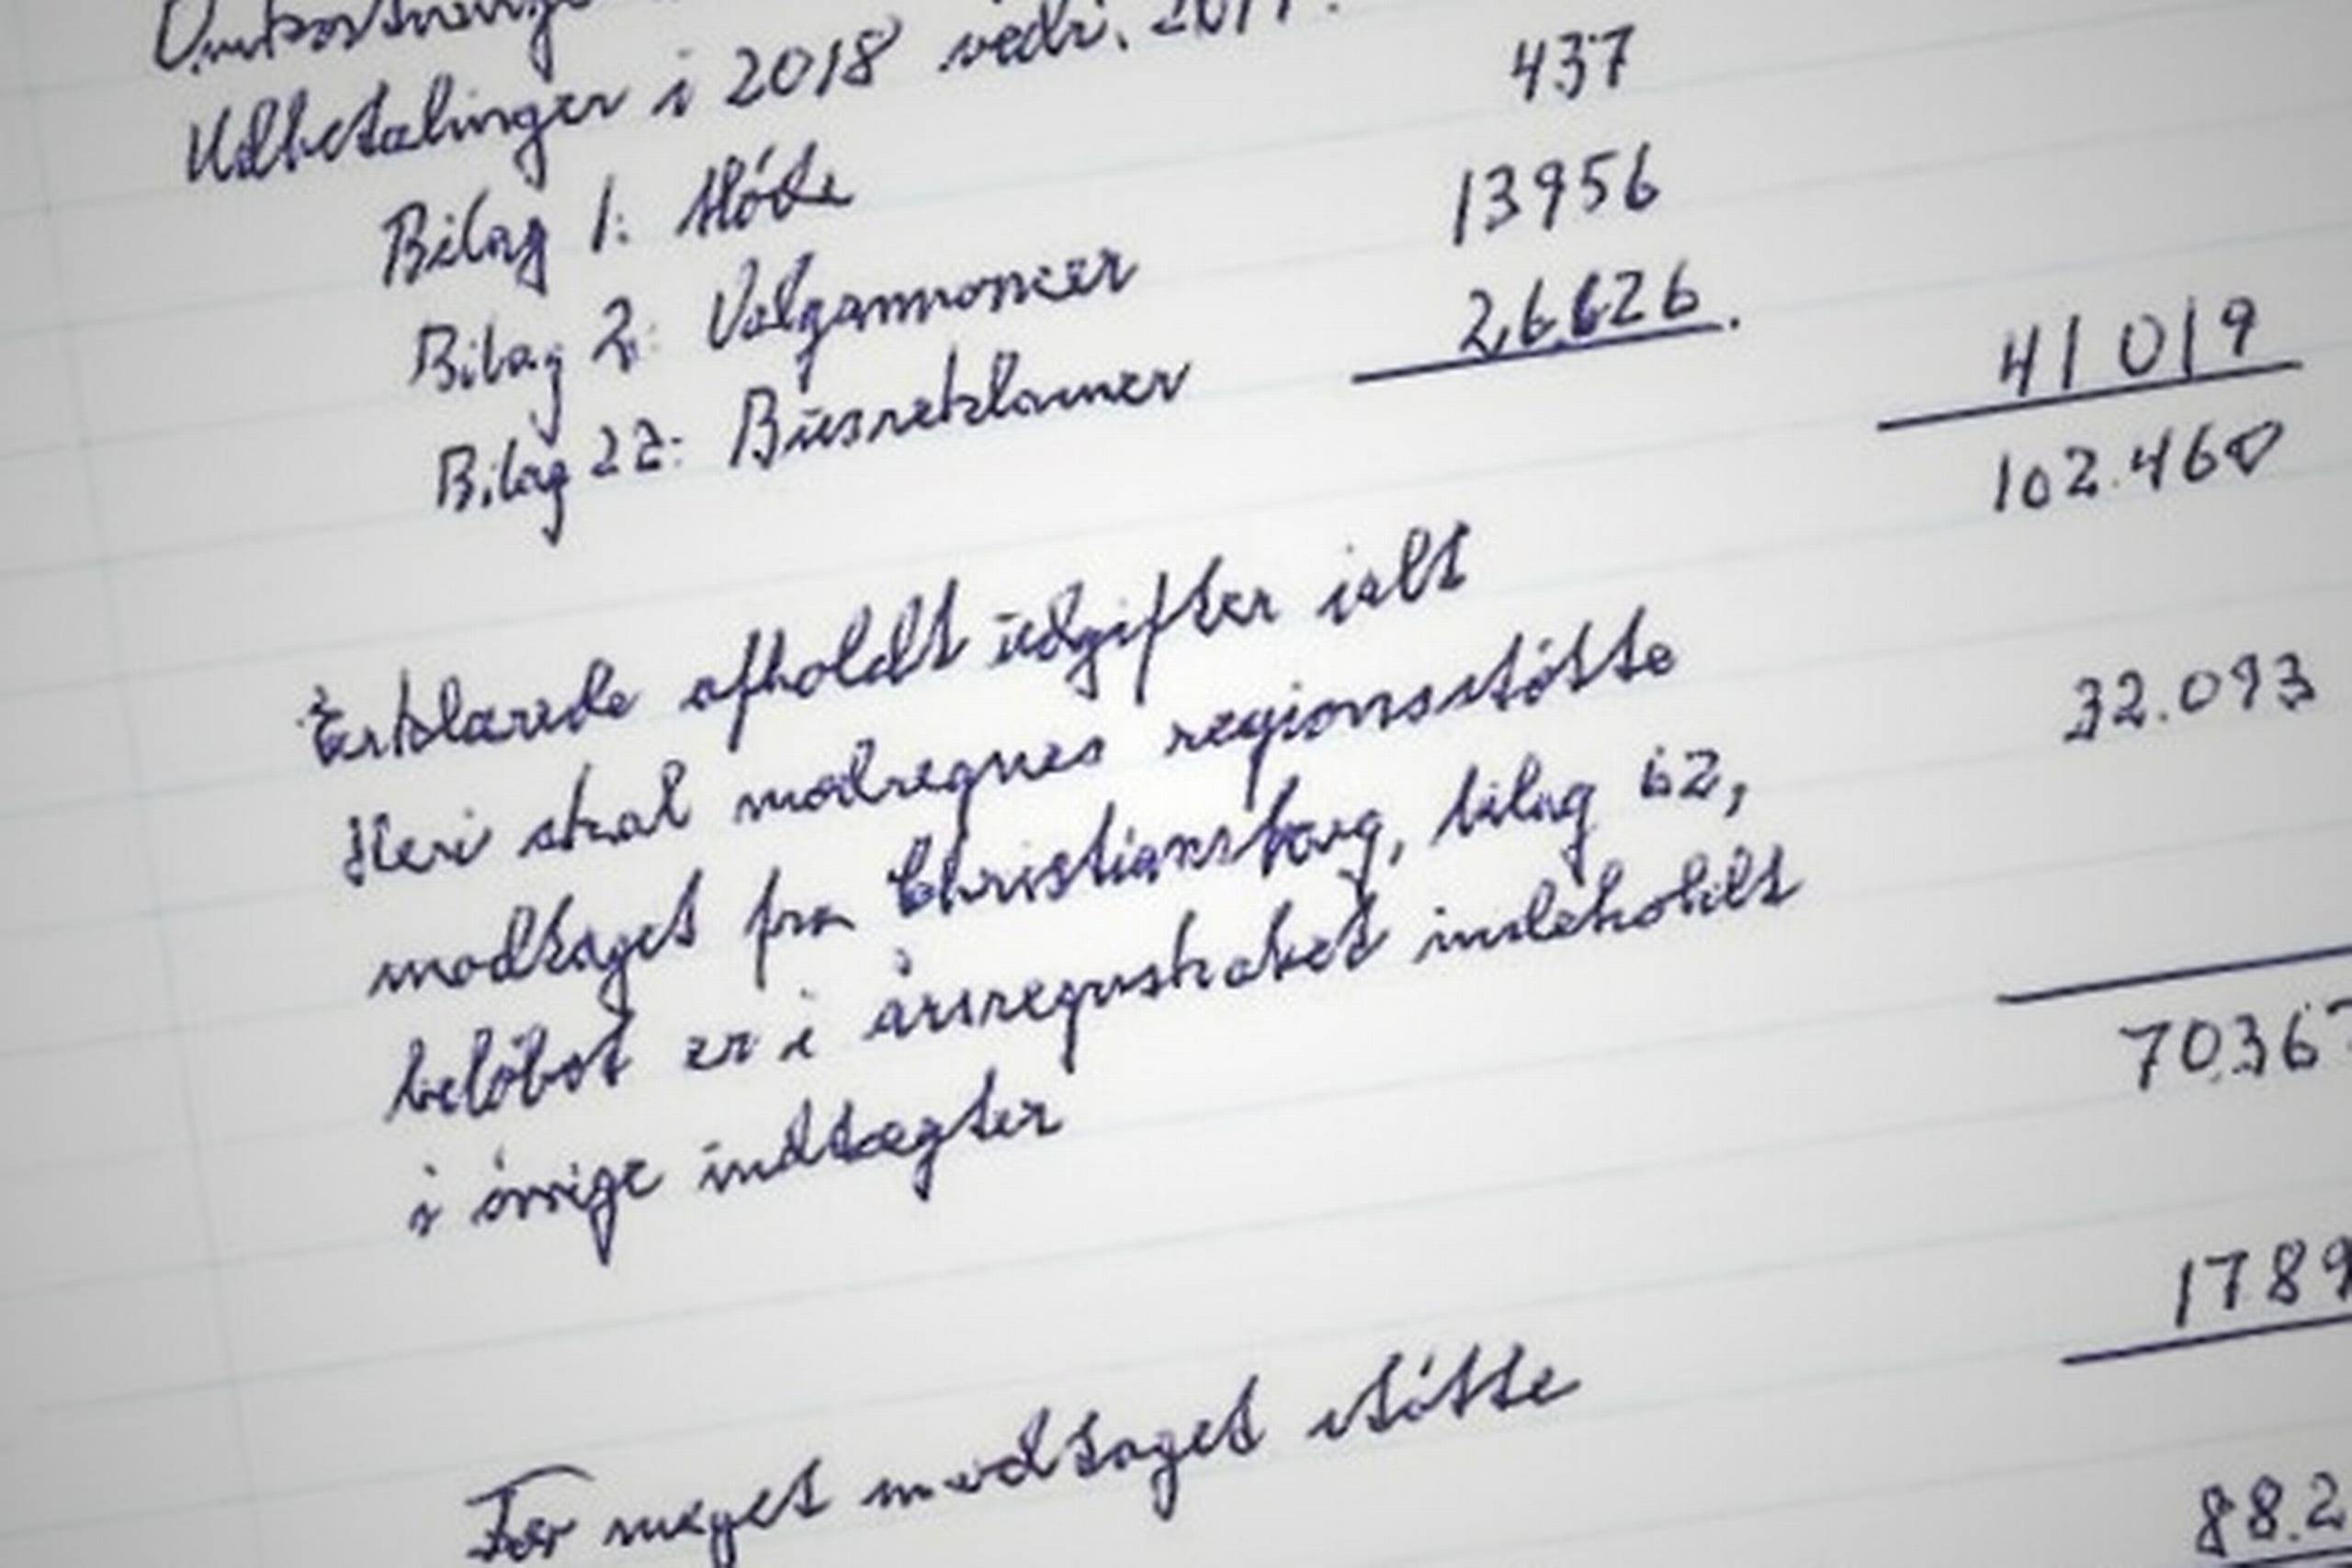 Udbetalinger i 2018 vedr.
437
Bilag 1: Møde
13956
Bilag 2: Valgannoncer
2,6626.
Bilag 22: Busreklamer
41019
102.460
Erklærede afholdt udgifter ialt
Heri skal modregnes regionsstøtte
32.093
modtaget fra Christiansborg, bilag 62,
beløbet er i årsregnskabet indeholdt
i øvrige indtægter
70.367
1789
For meget modtaget støtte
88.2